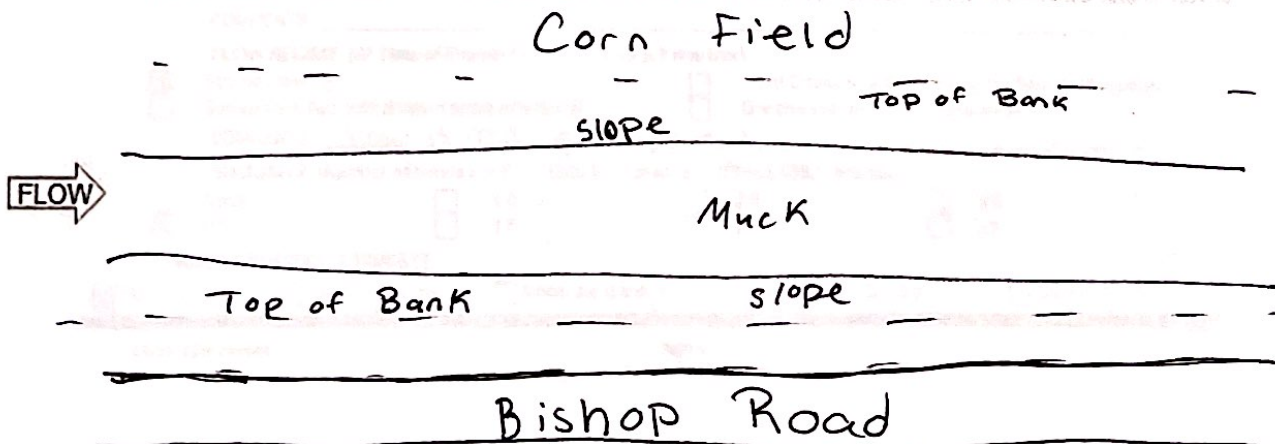 Corn Field
Top of Bank
slope
FLOW
Muck
Top of Bank
slope
Bishop Road